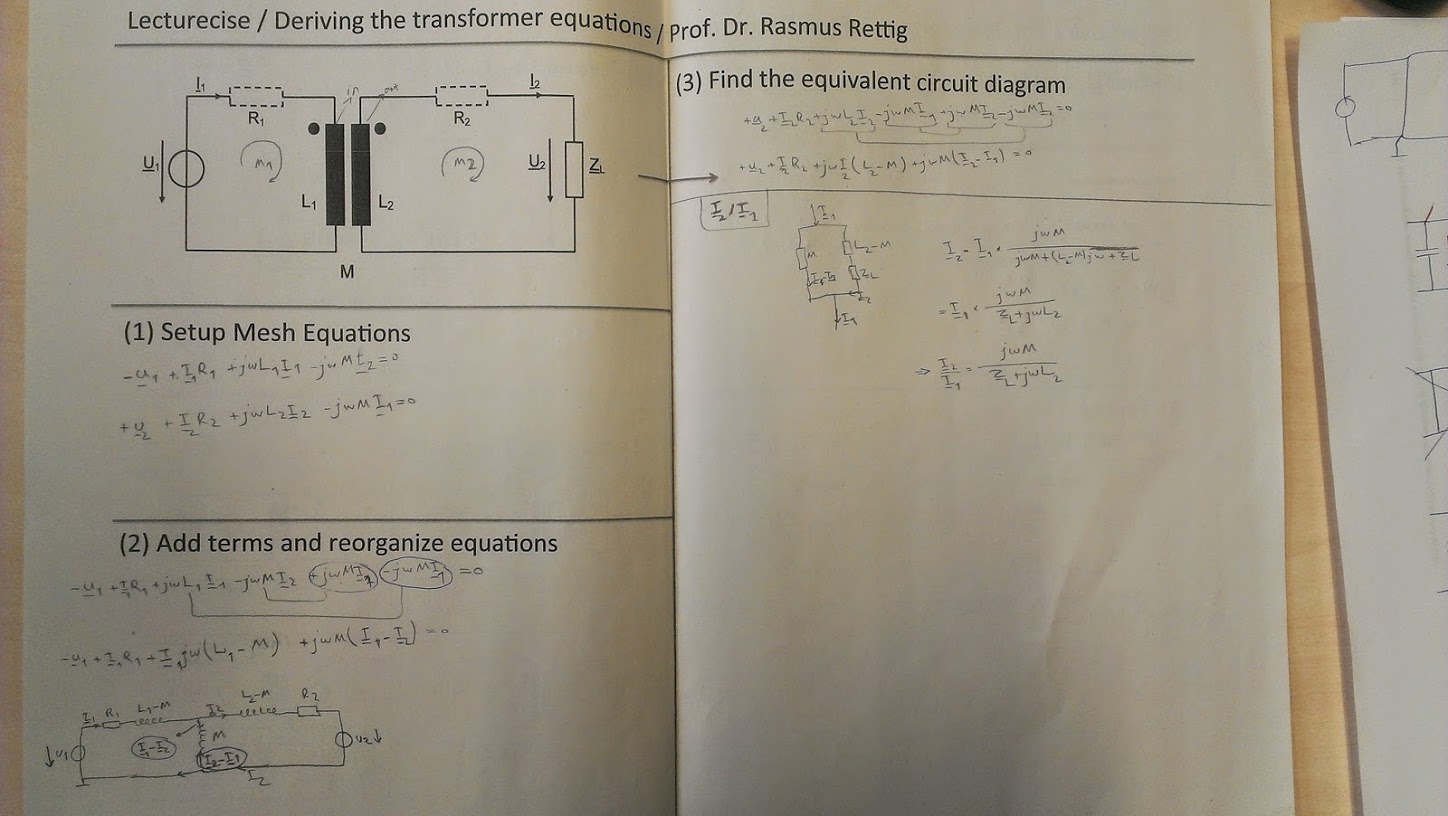 Lecturecise / Deriving the transformer equations / Prof. Dr. Rasmus Rettig
I1 R1 in out R2 I2
U1 M1 L1 L2 M2 U2 ZL
M
(1) Setup Mesh Equations
-U1 + I1R1 + jωL1I1 - jωMI2 = 0
+U2 + I2R2 + jωL2I2 - jωMI1 = 0
(2) Add terms and reorganize equations
-U1 + I1R1 + jωL1I1 - jωMI2 +jωMI1 -jωMI1 = 0
-U1 + I1R1 + I1jω(L1-M) + jωM(I1-I2) = 0
I1 R1 L1-M I2 L2-M R2
U1 I1-I2 M I2-I1 U2
I2
(3) Find the equivalent circuit diagram
+U2 + I2R2 + jωL2I2 - jωMI1 + jωMI2 - jωMI2 = 0
+U2 + I2R2 + jωI2(L2-M) + jωM(I2-I1) = 0
I2/I1
I1
M L2-M
I1-I2 ZL
I2
I1
I2 = I1 · jωM / jωM+(L2-M)jω+ZL
= I1 · jωM / ZL+jωL2
⇒ I2/I1 = jωM / ZL+jωL2